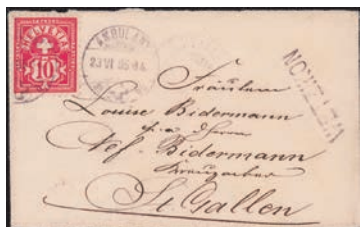 HELVETIA
10
AMBULANT
23 VI 05
WETZIKON
Fräulein
Louise Bidermann
p. a Herrn
Adf. Bidermann
St. Gallen